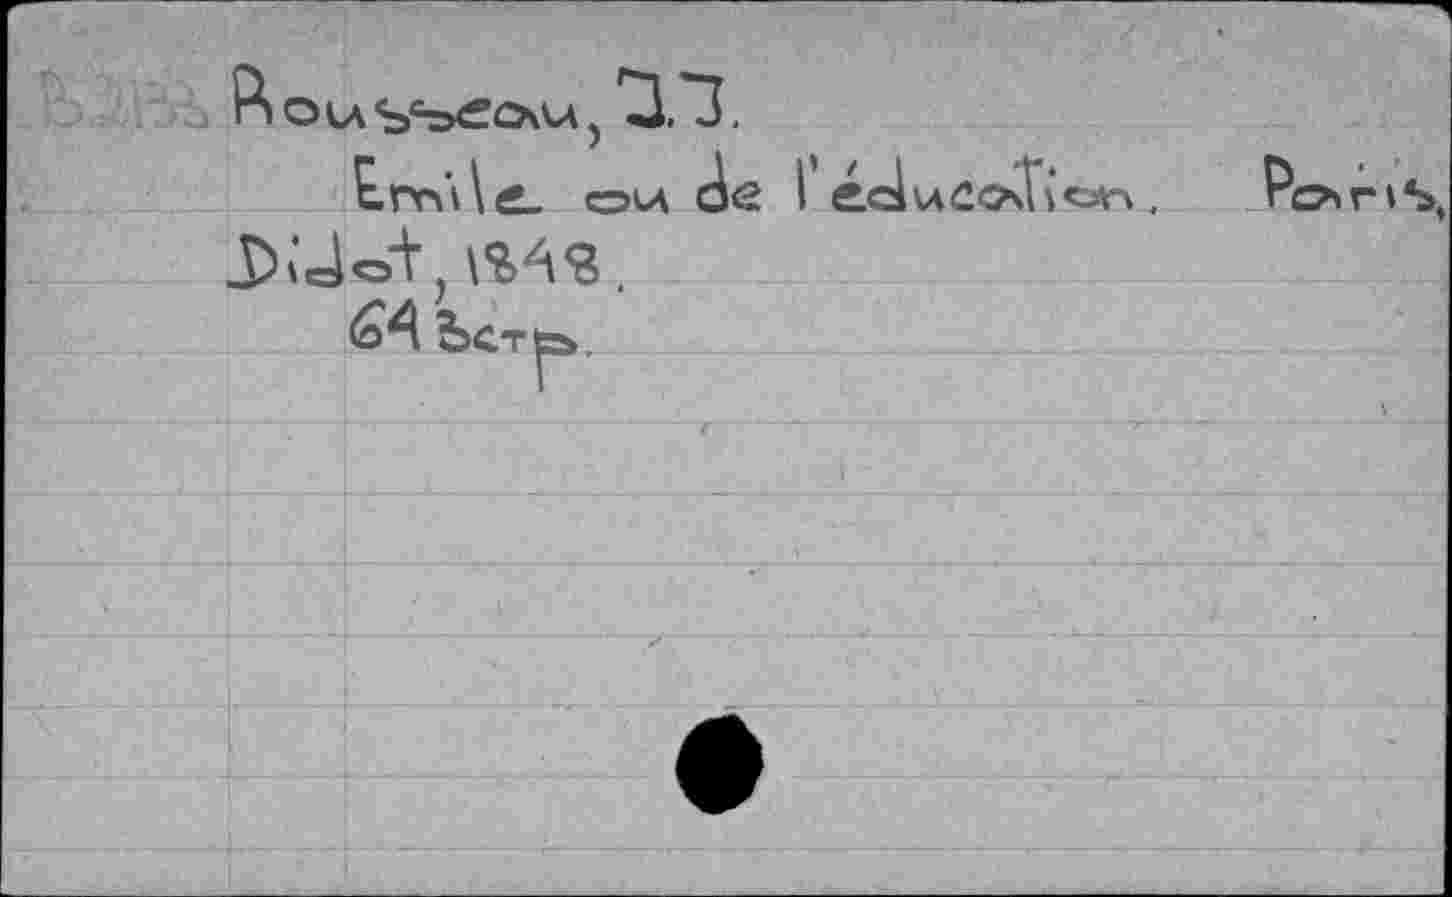 Rousseau, J.J.
Emile ou de l'éducation. Paris,
Didot, 1848.
стр.